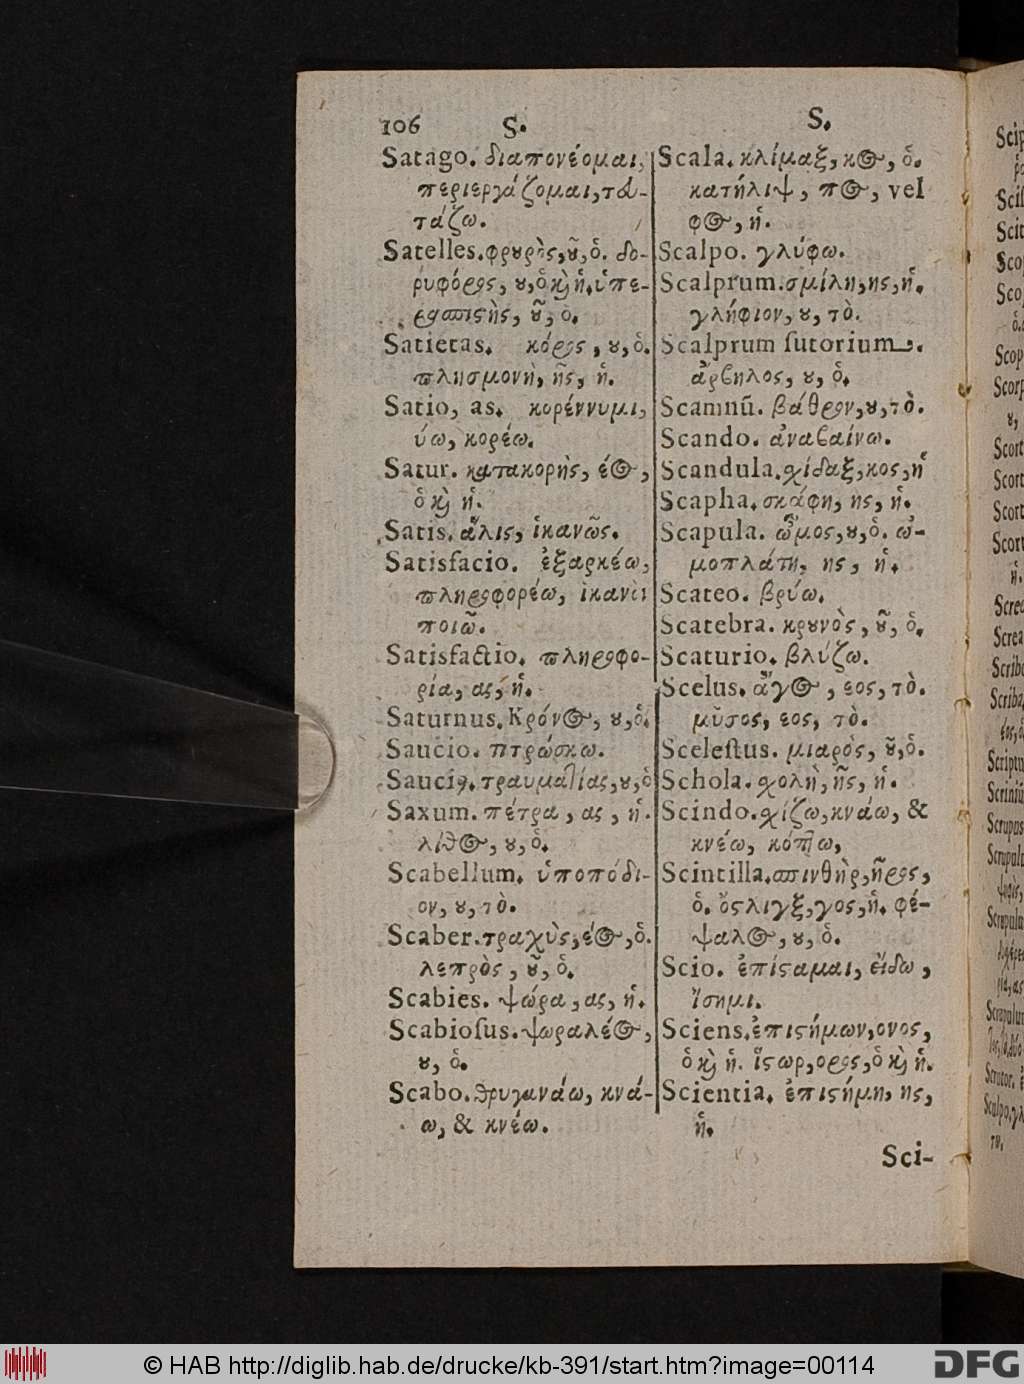 106 S. S.
Satago. διαπονέομαι,
περιεργάζομαι, ταν-
τάζω.
Satelles. φρουρὸς, οῦ, ὁ. δο-
ρυφόρος, ου, ὁ καὶ ἡ. ὑπε-
ρασπιστὴς, οῦ, ὁ.
Satietas. κόρος, ου, ὁ.
πλησμονὴ, ῆς, ἡ.
Satio, as. κορέννυμι,
ύω, κορέω.
Satur. κατακορὴς, έος,
ὁ καὶ ἡ.
Satis. ἅλις, ἱκανῶς.
Satisfacio. ἐξαρκέω,
πληροφορέω, ἱκανὸν
ποιῶ.
Satisfactio. πληροφο-
ρία, ας, ἡ.
Saturnus. Κρόνος, ου, ὁ.
Saucio. πτρώσκω.
Saucius. τραυματίας, ου, ὁ
Saxum. πέτρα, ας, ἡ.
λίθος, ου, ὁ.
Scabellum. ὑποπόδι-
ον, ου, τὸ.
Scaber. τραχὺς, έος, ὁ.
λεπρὸς, οῦ, ὁ.
Scabies. ψώρα, ας, ἡ.
Scabioſus. ψωραλέος,
ου, ὁ.
Scabo. θρυγανάω, κνά-
ω, & κνέω.
Scala. κλίμαξ, κος, ὁ.
κατήλιψ, πος, vel
φος, ἡ.
Scalpo. γλύφω.
Scalprum. σμίλη, ης, ἡ.
γλήφιον, ου, τὸ.
Scalprum ſutorium.
ἄρβηλος, ου, ὁ.
Scamnū. βάθρον, ου, τὸ.
Scando. ἀναβαίνω.
Scandula. σχίδαξ, κος, ἡ
Scapha. σκάφη, ης, ἡ.
Scapula. ὦμος, ου, ὁ. ὠ-
μοπλάτη, ης, ἡ.
Scateo. βρύω.
Scatebra. κρουνὸς, οῦ, ὁ.
Scaturio. βλύζω.
Scelus. ἄγος, εος, τὸ.
μῦσος, εος, τὸ.
Sceleſtus. μιαρὸς, οῦ, ὁ.
Schola. σχολὴ, ῆς, ἡ.
Scindo. σχίζω, κνάω, &
κνέω, κόπτω,
Scintilla. σπινθὴρ, ῆρος,
ὁ. ὄστλιγξ, γος, ἡ. φέ-
ψαλος, ου, ὁ.
Scio. ἐπίσταμαι, εἴδω,
ἴσημι.
Sciens. ἐπιστήμων, ονος,
ὁ καὶ ἡ. ἵστωρ, ορος, ὁ καὶ ἡ.
Scientia. ἐπιστήμη, ης,
ἡ.
Sci-
© HAB http://diglib.hab.de/drucke/kb-391/start.htm?image=00114
DFG